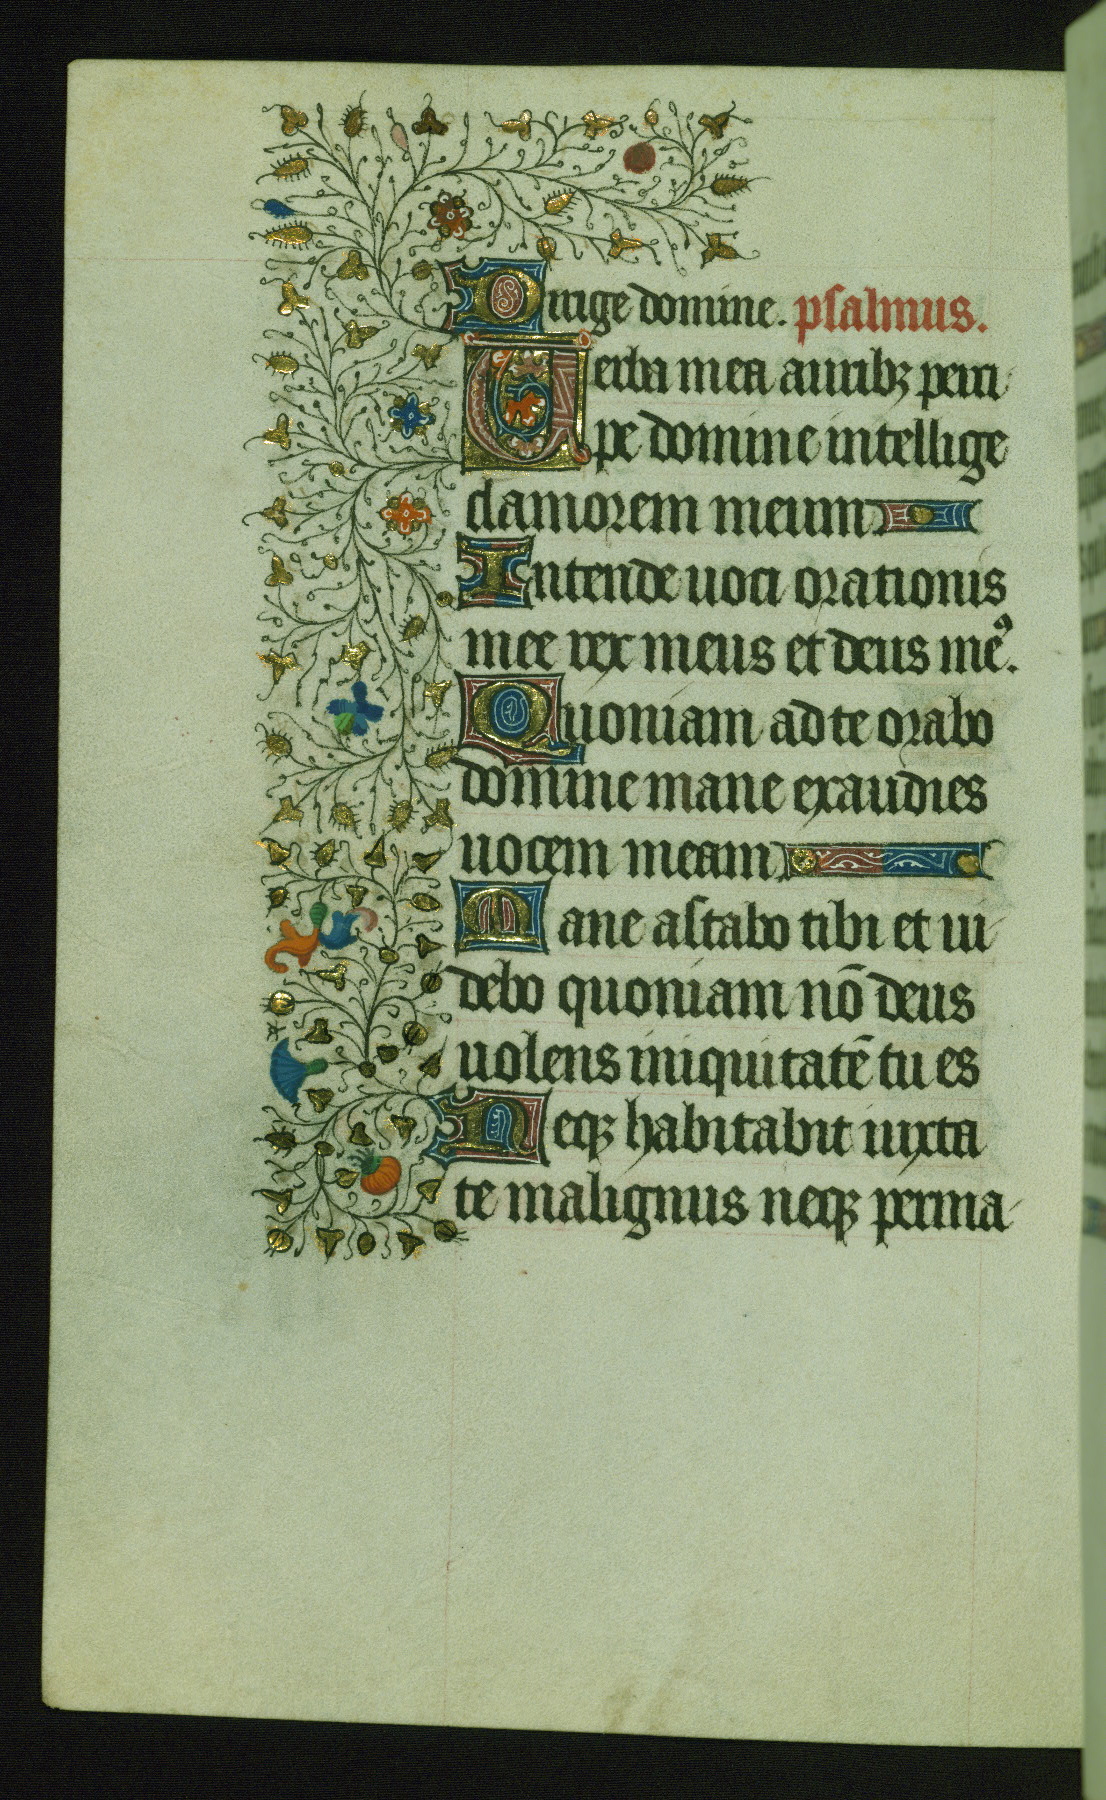 Dirige domine. psalmus.
Uerba mea auribꝫ perci
pe domine intellige
clamorem meum
Intende uoci orationis
mee rex meus et deus meꝰ.
Quoniam ad te orabo
domine mane exaudies
uocem meam
Mane astabo tibi et ui
debo quoniam nō deus
uolens iniquitatē tu es
Neqꝫ habitabit iuxta
te malignus neqꝫ perma